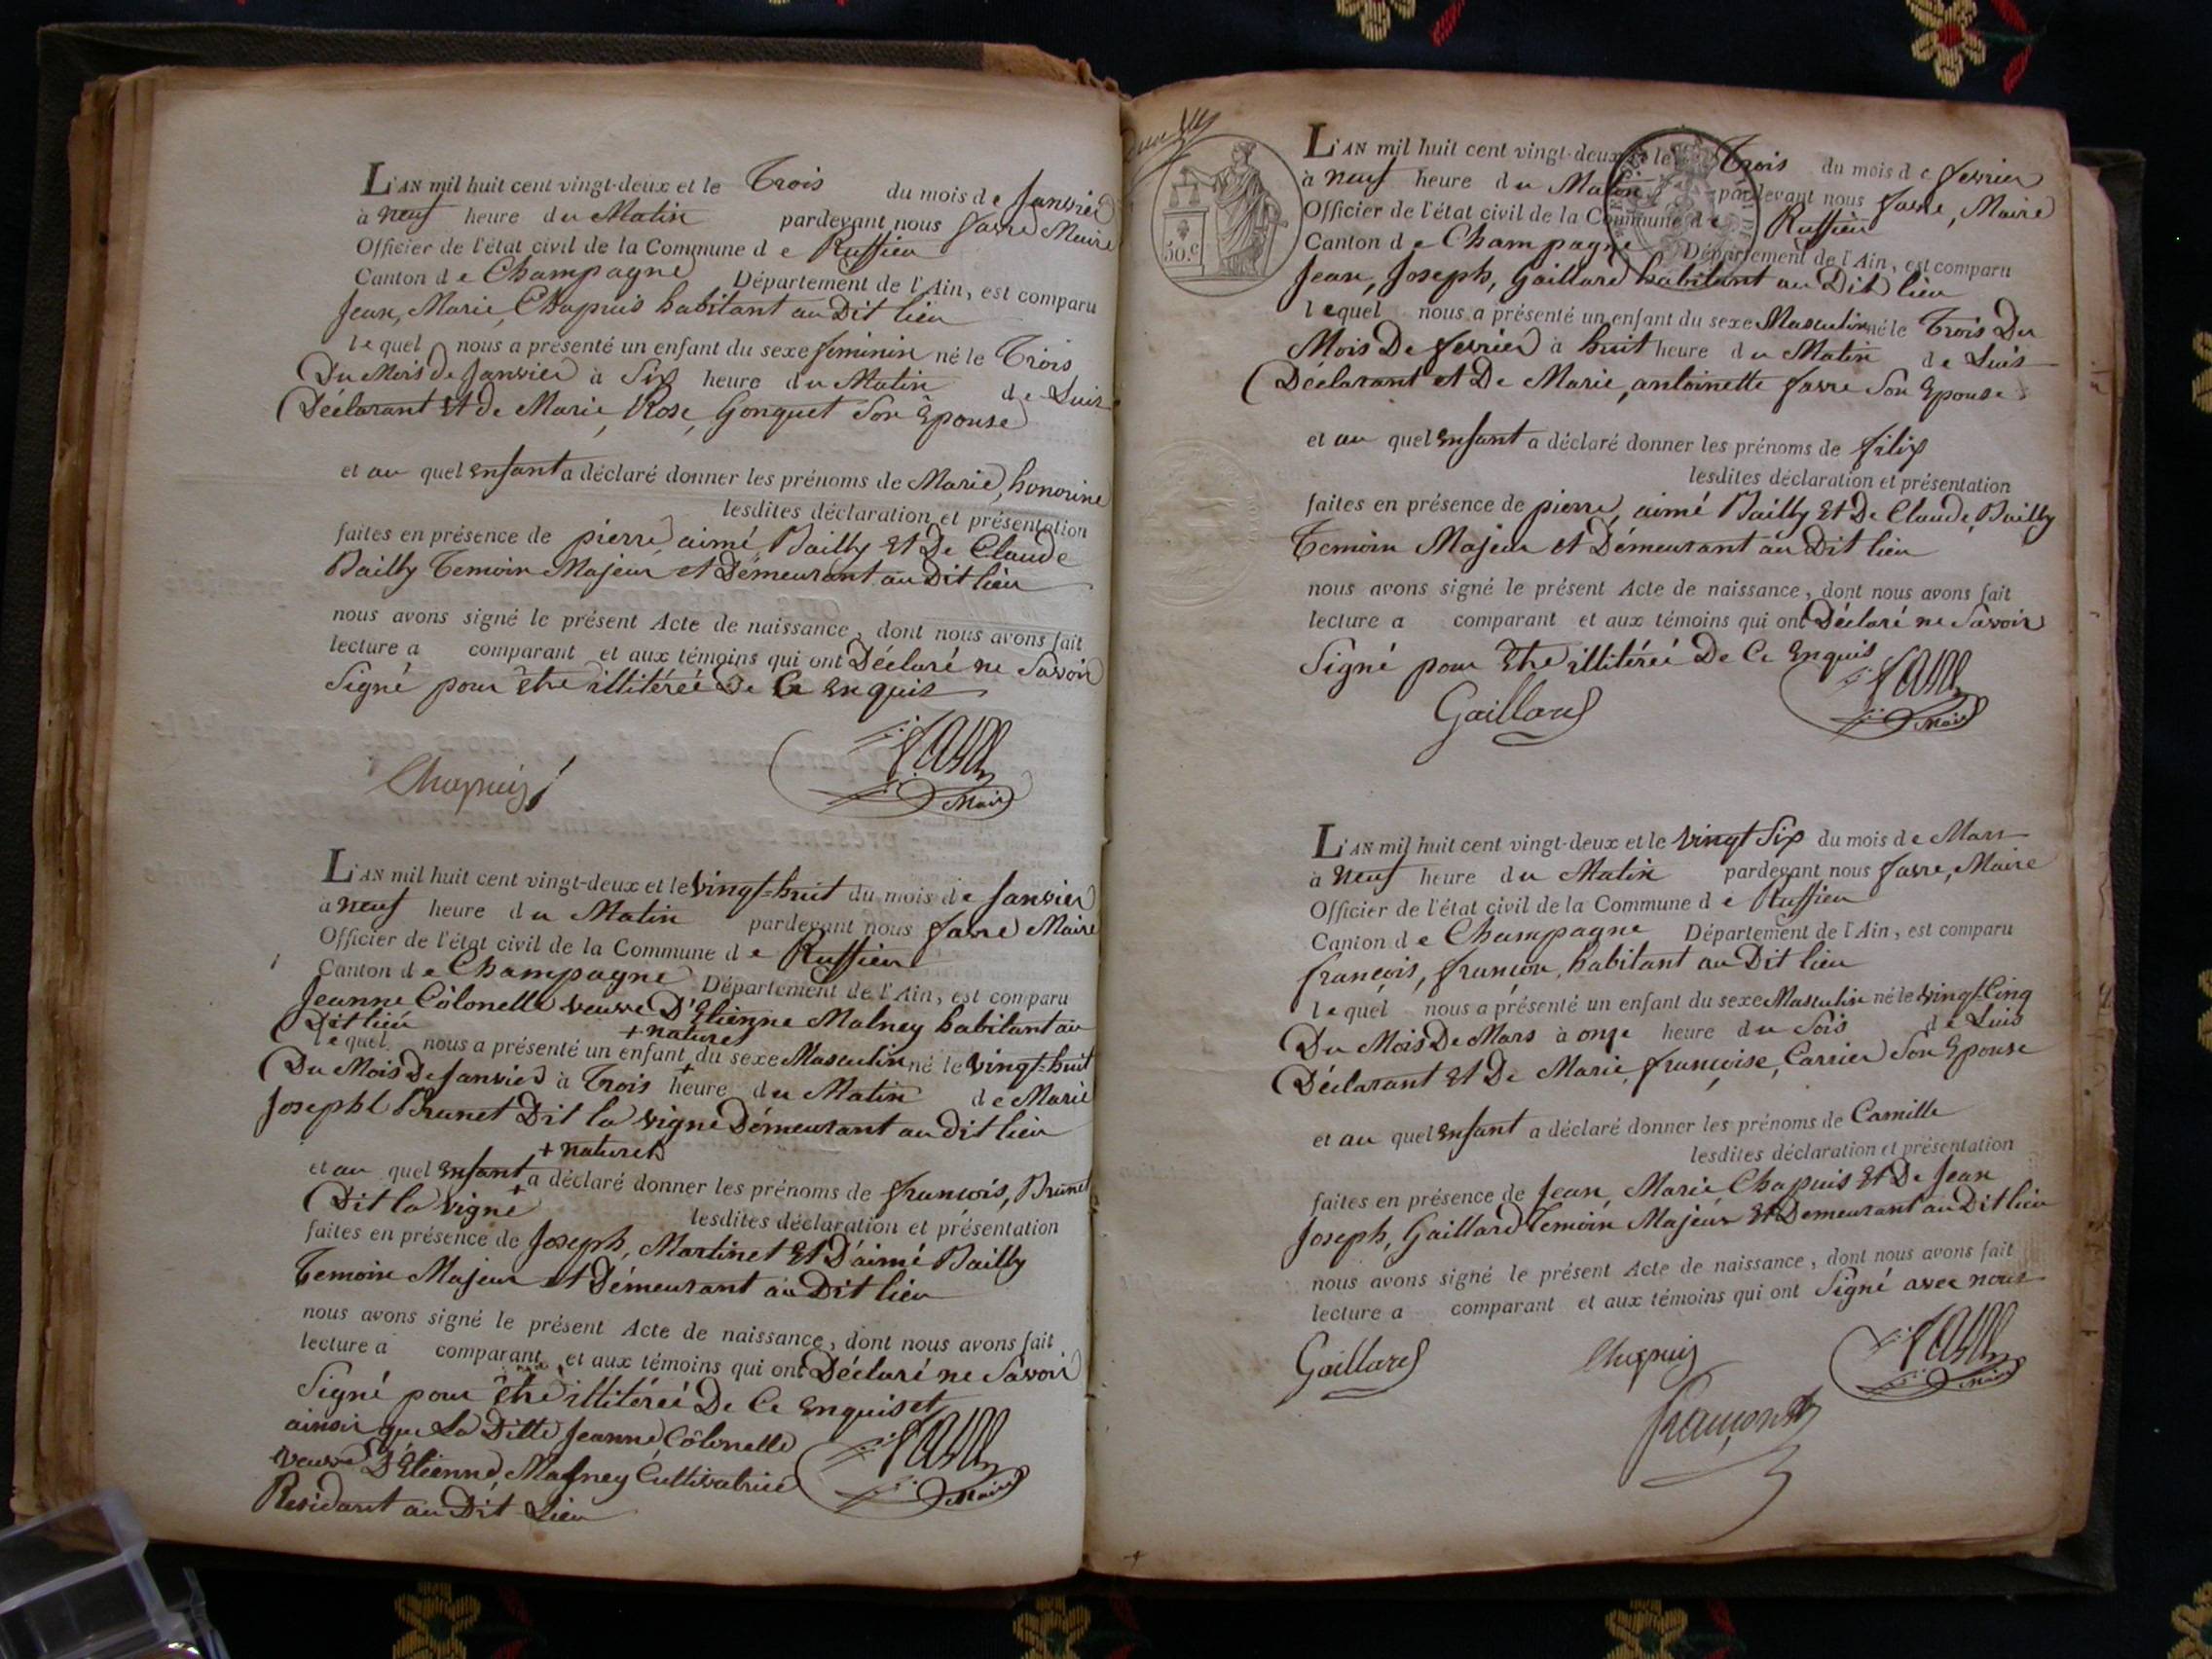 L'AN mil huit cent vingt-deux et le Trois du mois de Janvier
à neuf heure du Matin pardevant nous favre Maire
Officier de l'état civil de la Commune de Ruffieu
Canton de Champagne Département de l'Ain, est comparu
Jean, Marie, Chapuis habitant au Dit lieu
lequel nous a présenté un enfant du sexe feminin né le Trois
Du Mois de Janvier à Six heure du Matin de Luis
Déclarant Et de Marie, Rose, Gonguet Son Epouse
et au quel enfant a déclaré donner les prénoms de Marie, honorine
lesdites déclaration et présentation
faites en présence de pierre, aimé, Bailly Et De Claude
Bailly Temoin Majeur et Démeurant au Dit lieu
nous avons signé le présent Acte de naissance, dont nous avons fait
lecture a comparant et aux témoins qui ont Déclaré ne Savoir
Signé pour Etre illitéréé De Ce Enquis
Chapuis favre
Maire
L'AN mil huit cent vingt-deux et le vingt-huit du mois de Janvier
à neuf heure du Matin pardevant nous favre Maire
Officier de l'état civil de la Commune de Ruffieu
Canton de Champagne Département de l'Ain, est comparu
Jeanne Côlonelle veuve D'Etienne Malney habitant au
Dit lieu + naturel
lequel nous a présenté un enfant + du sexe Masculin né le vingt-huit
Du Mois De Janvier à Trois heure du Matin de Marie
Josephte Brunet Dit la vigne Démeurant au dit lieu
+ naturel
et au quel enfant + a déclaré donner les prénoms de francois, Brunet
Dit la vigne lesdites déclaration et présentation
faites en présence de Joseph, Martinet Et D'aimé Bailly
Temoin Majeur et Démeurant au Dit lieu
nous avons signé le présent Acte de naissance, dont nous avons fait
lecture a comparant et aux témoins qui ont Déclaré ne Savoir
Signé pour être illitéréé De Ce Enquis et
ainsi que La Ditte Jeanne Côlonelle
veuve D'Etienne, Malney Cultivatrice
Residant au Dit Lieu
favre
Maire
L'AN mil huit cent vingt-deux et le Trois du mois de fevrier
à neuf heure du Matin pardevant nous favre, Maire
Officier de l'état civil de la Commune de Ruffieu
Canton de Champagne Département de l'Ain, est comparu
Jean, Joseph, Gaillard habitant au Dit lieu
lequel nous a présenté un enfant du sexe Masculin né le Trois Du
Mois De fevrier à huit heure du Matin de Luis
Déclarant et De Marie, antoinette favre Son Epouse
et au quel enfant a déclaré donner les prénoms de filix
lesdites déclaration et présentation
faites en présence de pierre, aimé Bailly Et De Claude, Bailly
Temoin Majeur et Démeurant au Dit lieu
nous avons signé le présent Acte de naissance, dont nous avons fait
lecture a comparant et aux témoins qui ont Déclaré ne Savoir
Signé pour Etre illitéréé De Ce Enquis
Gaillard favre
Maire
50.c
L'AN mil huit cent vingt-deux et le vingt Six du mois de Mars
à neuf heure du Matin pardevant nous favre, Maire
Officier de l'état civil de la Commune de Ruffieu
Canton de Champagne Département de l'Ain, est comparu
françois, françon, habitant au Dit lieu
lequel nous a présenté un enfant du sexe Masculin né le vingt-Cinq
Du Mois De Mars à onze heure du Soir de Luis
Déclarant Et De Marie, françoise, Carrier Son Epouse
et au quel enfant a déclaré donner les prénoms de Camille
lesdites déclaration et présentation
faites en présence de Jean, Marie, Chapuis Et De Jean
Joseph, Gaillard Temoin Majeur Et Demeurant au Dit lieu
nous avons signé le présent Acte de naissance, dont nous avons fait
lecture a comparant et aux témoins qui ont Signé avec nous
Gaillard Chapuis favre
Maire
françon